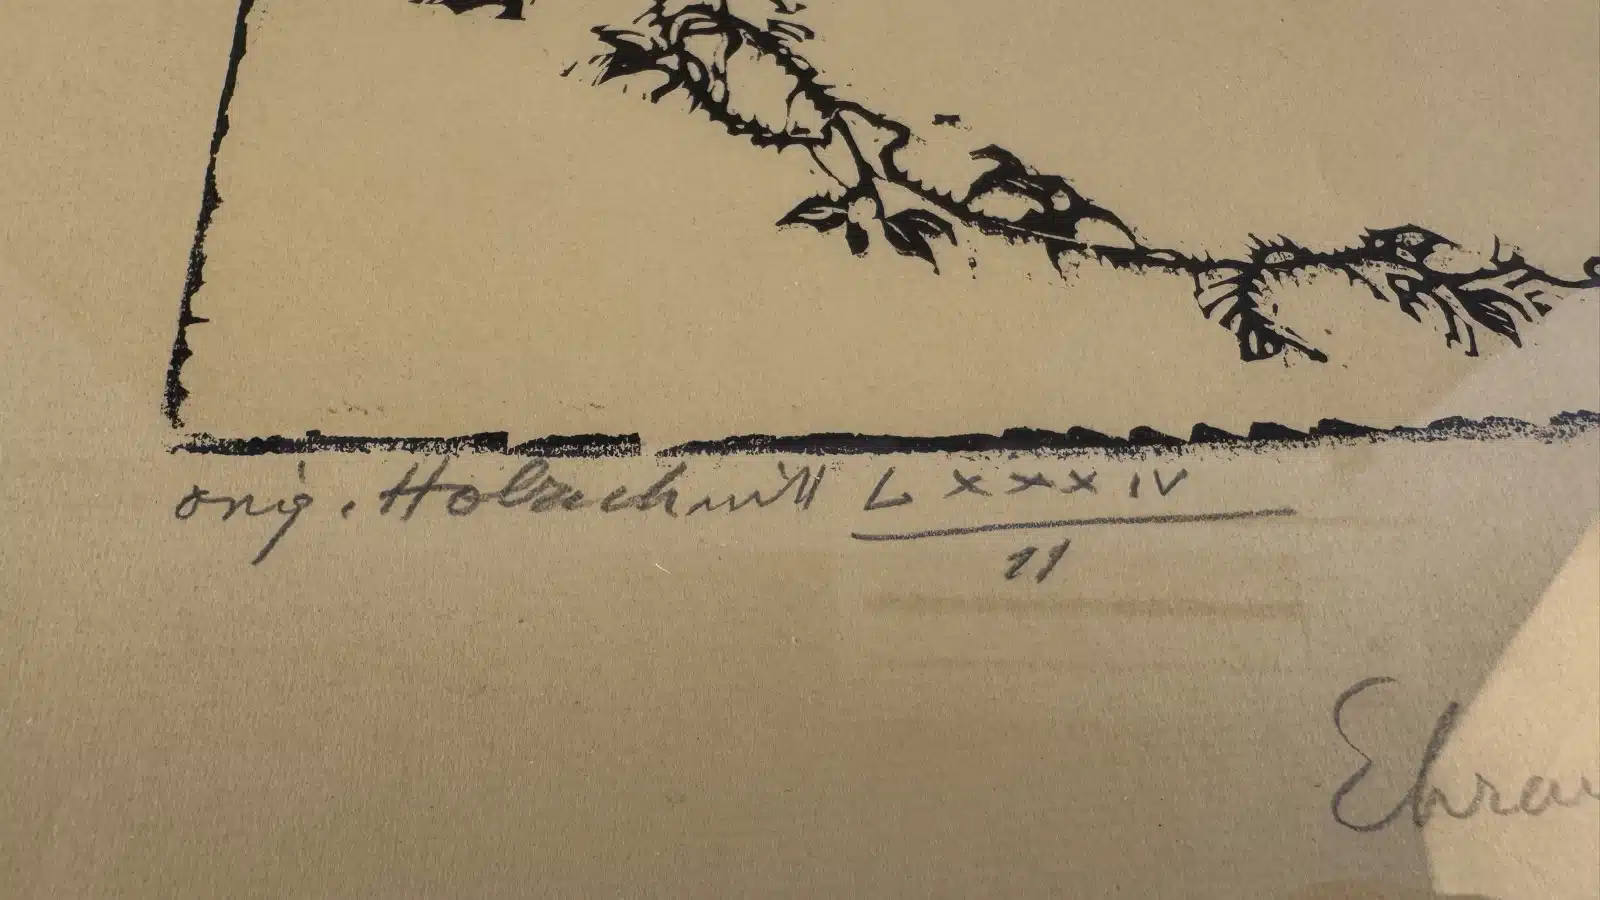 orig. Holzschnitt LXXXIV
11